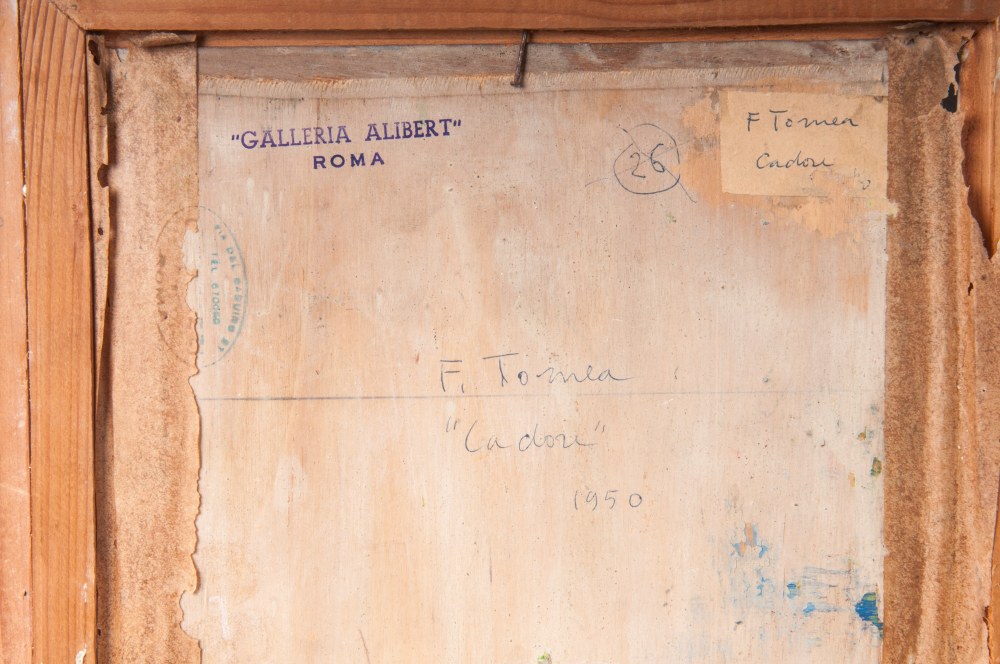 "GALLERIA ALIBERT"
ROMA
26
F Tomea
Cadore
VIA DEL
TEL.
F. Tomea
"Cadore"
1950